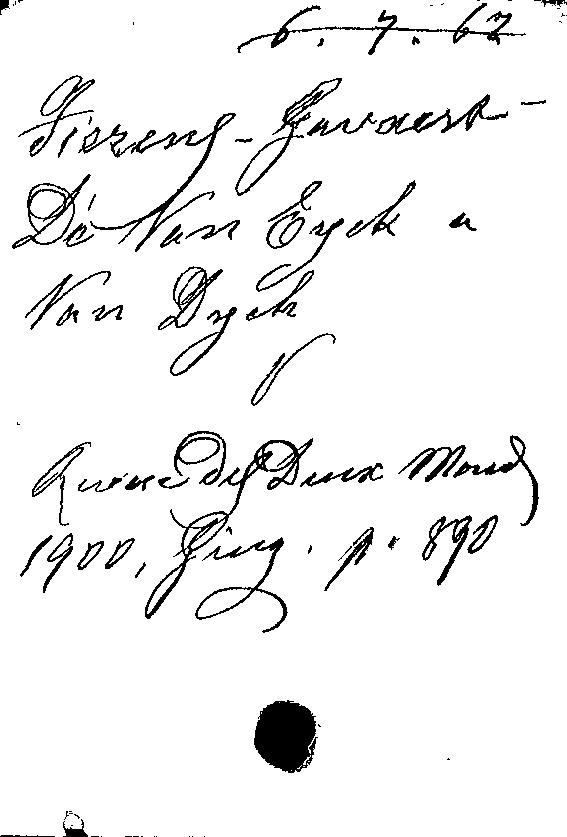 6. 7. 62
Fierens-Gevaert-
De Van Eyck a
Van Dyck
V
Revue des Deux Mond
1900, Giug. p. 890